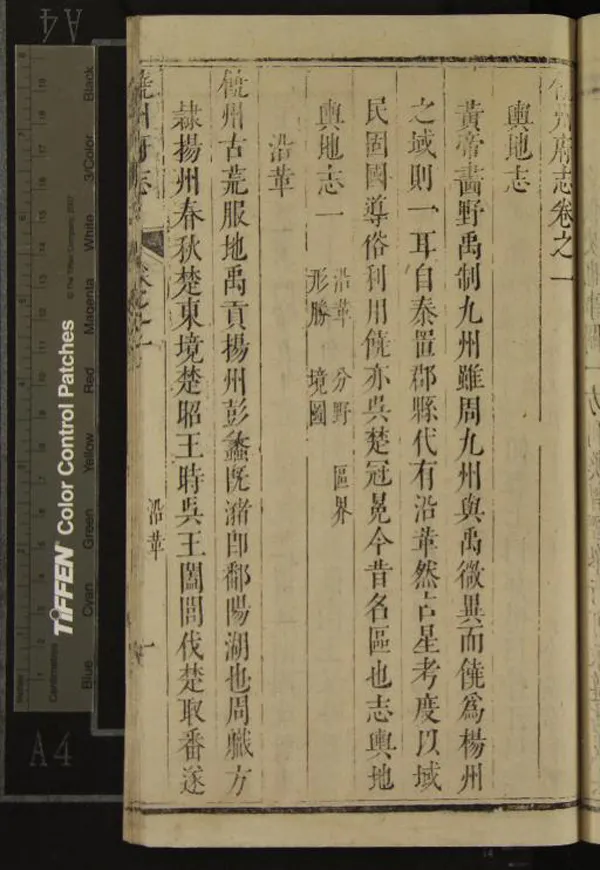 饒州府志卷之一
輿地志
黃帝畫野禹制九州雖周九州與禹微異而饒爲楊州
之域則一耳自秦置郡縣代有沿革然占星考度以域
民固國導俗利用饒亦吳楚冠冕今昔名區也志輿地
輿地志一
沿革 分野 區界
形勝 境圖
沿革
饒州古荒服地禹貢揚州彭蠡既瀦卽鄱陽湖也周職方
隸揚州春秋楚東境楚昭王時吳王闔閭伐楚取番遂
饒州府志
卷之一
沿革
一
A4
A4
TIFFEN Color Control Patches
© The Tiffen Company, 2007
Blue
Cyan
Green
Yellow
Red
Magenta
White
3/Color
Black
Centimetres
Inches